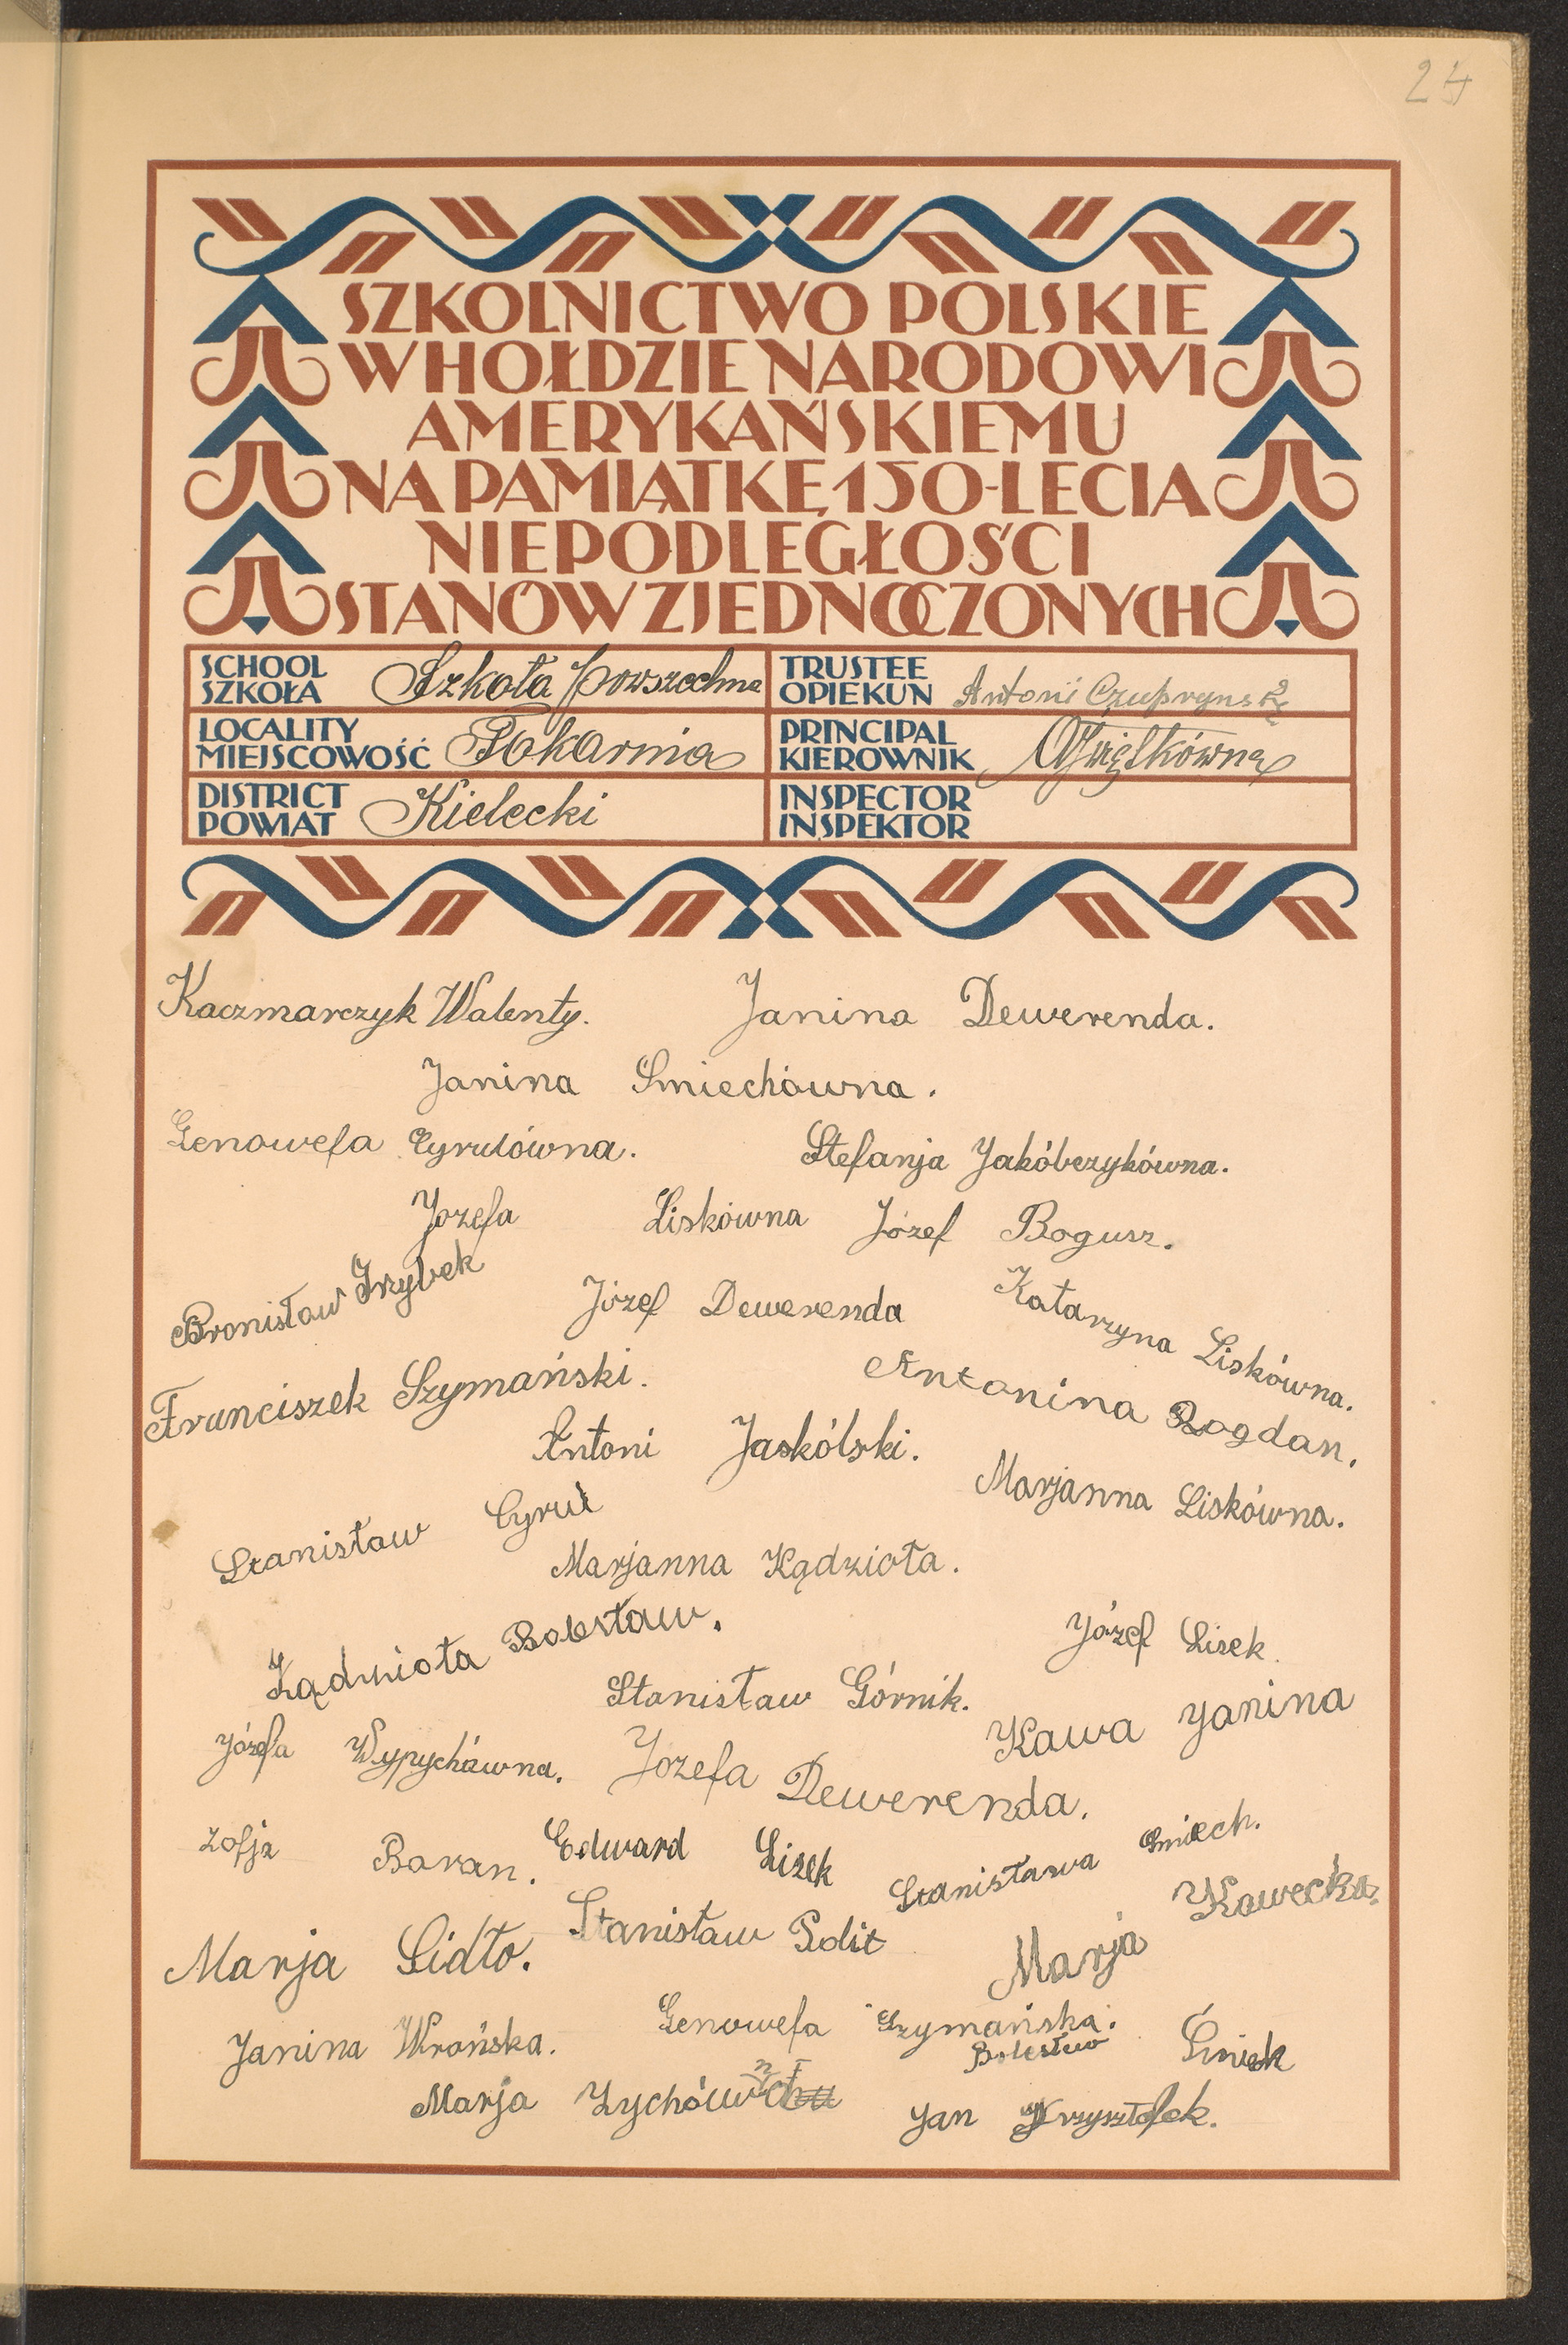 24
SZKOLNICTWO POLSKIE
W HOŁDZIE NARODOWI
AMERYKAŃSKIEMU
NA PAMIĄTKĘ 150-LECIA
NIEPODLEGŁOŚCI
STANÓW ZJEDNOCZONYCH
SCHOOL
SZKOŁA Szkoła Powszechna
TRUSTEE
OPIEKUN Antoni
LOCALITY
MIEJSCOWOŚĆ Tokarnia
PRINCIPAL
KIEROWNIK
DISTRICT
POWIAT Kielecki
INSPECTOR
INSPEKTOR
Kaczmarczyk Walenty. Janina Dewerenda.
Janina Smiechówna.
Genowefa Cyrulówna. Stefanja Jakóbczykówna.
Jozefa Liskówna Józef Bogusz.
Bronisław Grzybek Józef Dewerenda Katarzyna Liskówna.
Franciszek Szymański. Antonina Bogdan.
Antoni Jaskólski. Marjanna Liskówna.
Stanisław Cyrul
Marjanna Kądzioła.
Kądzioła Bolesław. Józef Lisek.
Stanisław Górnik. Kawa Janina
Józefa Wypychówna. Jozefa Dewerenda.
Zofja Baran. Edward Lisek Stanisława Smiech.
Marja Sidło. Stanisław Polit Marja Kawecka.
Janina Wrońska. Genowefa Szymańska.
Bolesław Śmiek
Marja Zychówna Jan Krzysztofek.